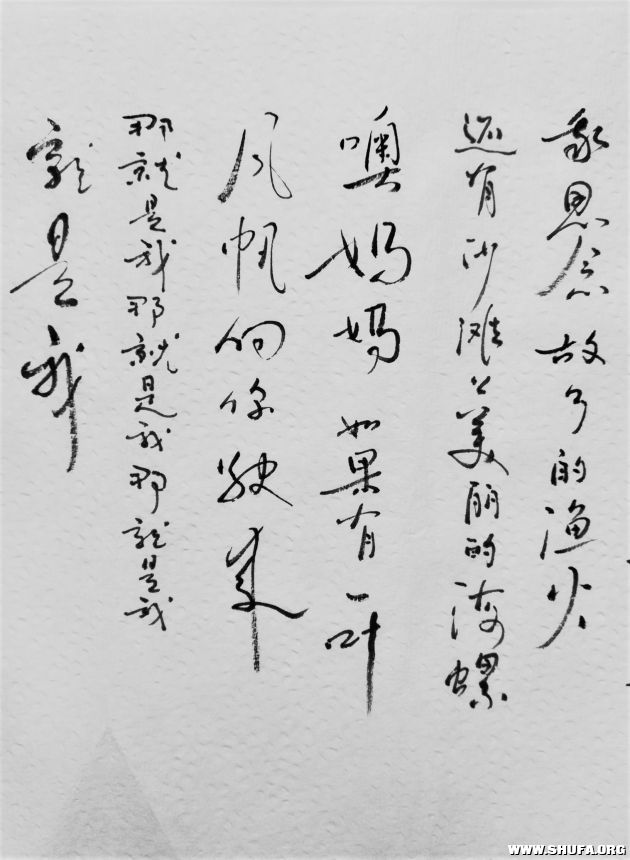 我思念故乡的渔火
还有沙滩上美丽的海螺
噢妈妈如果有一叶
风帆向你驶来
那就是我那就是我那就是我
就是我
WWW.SHUFA.ORG